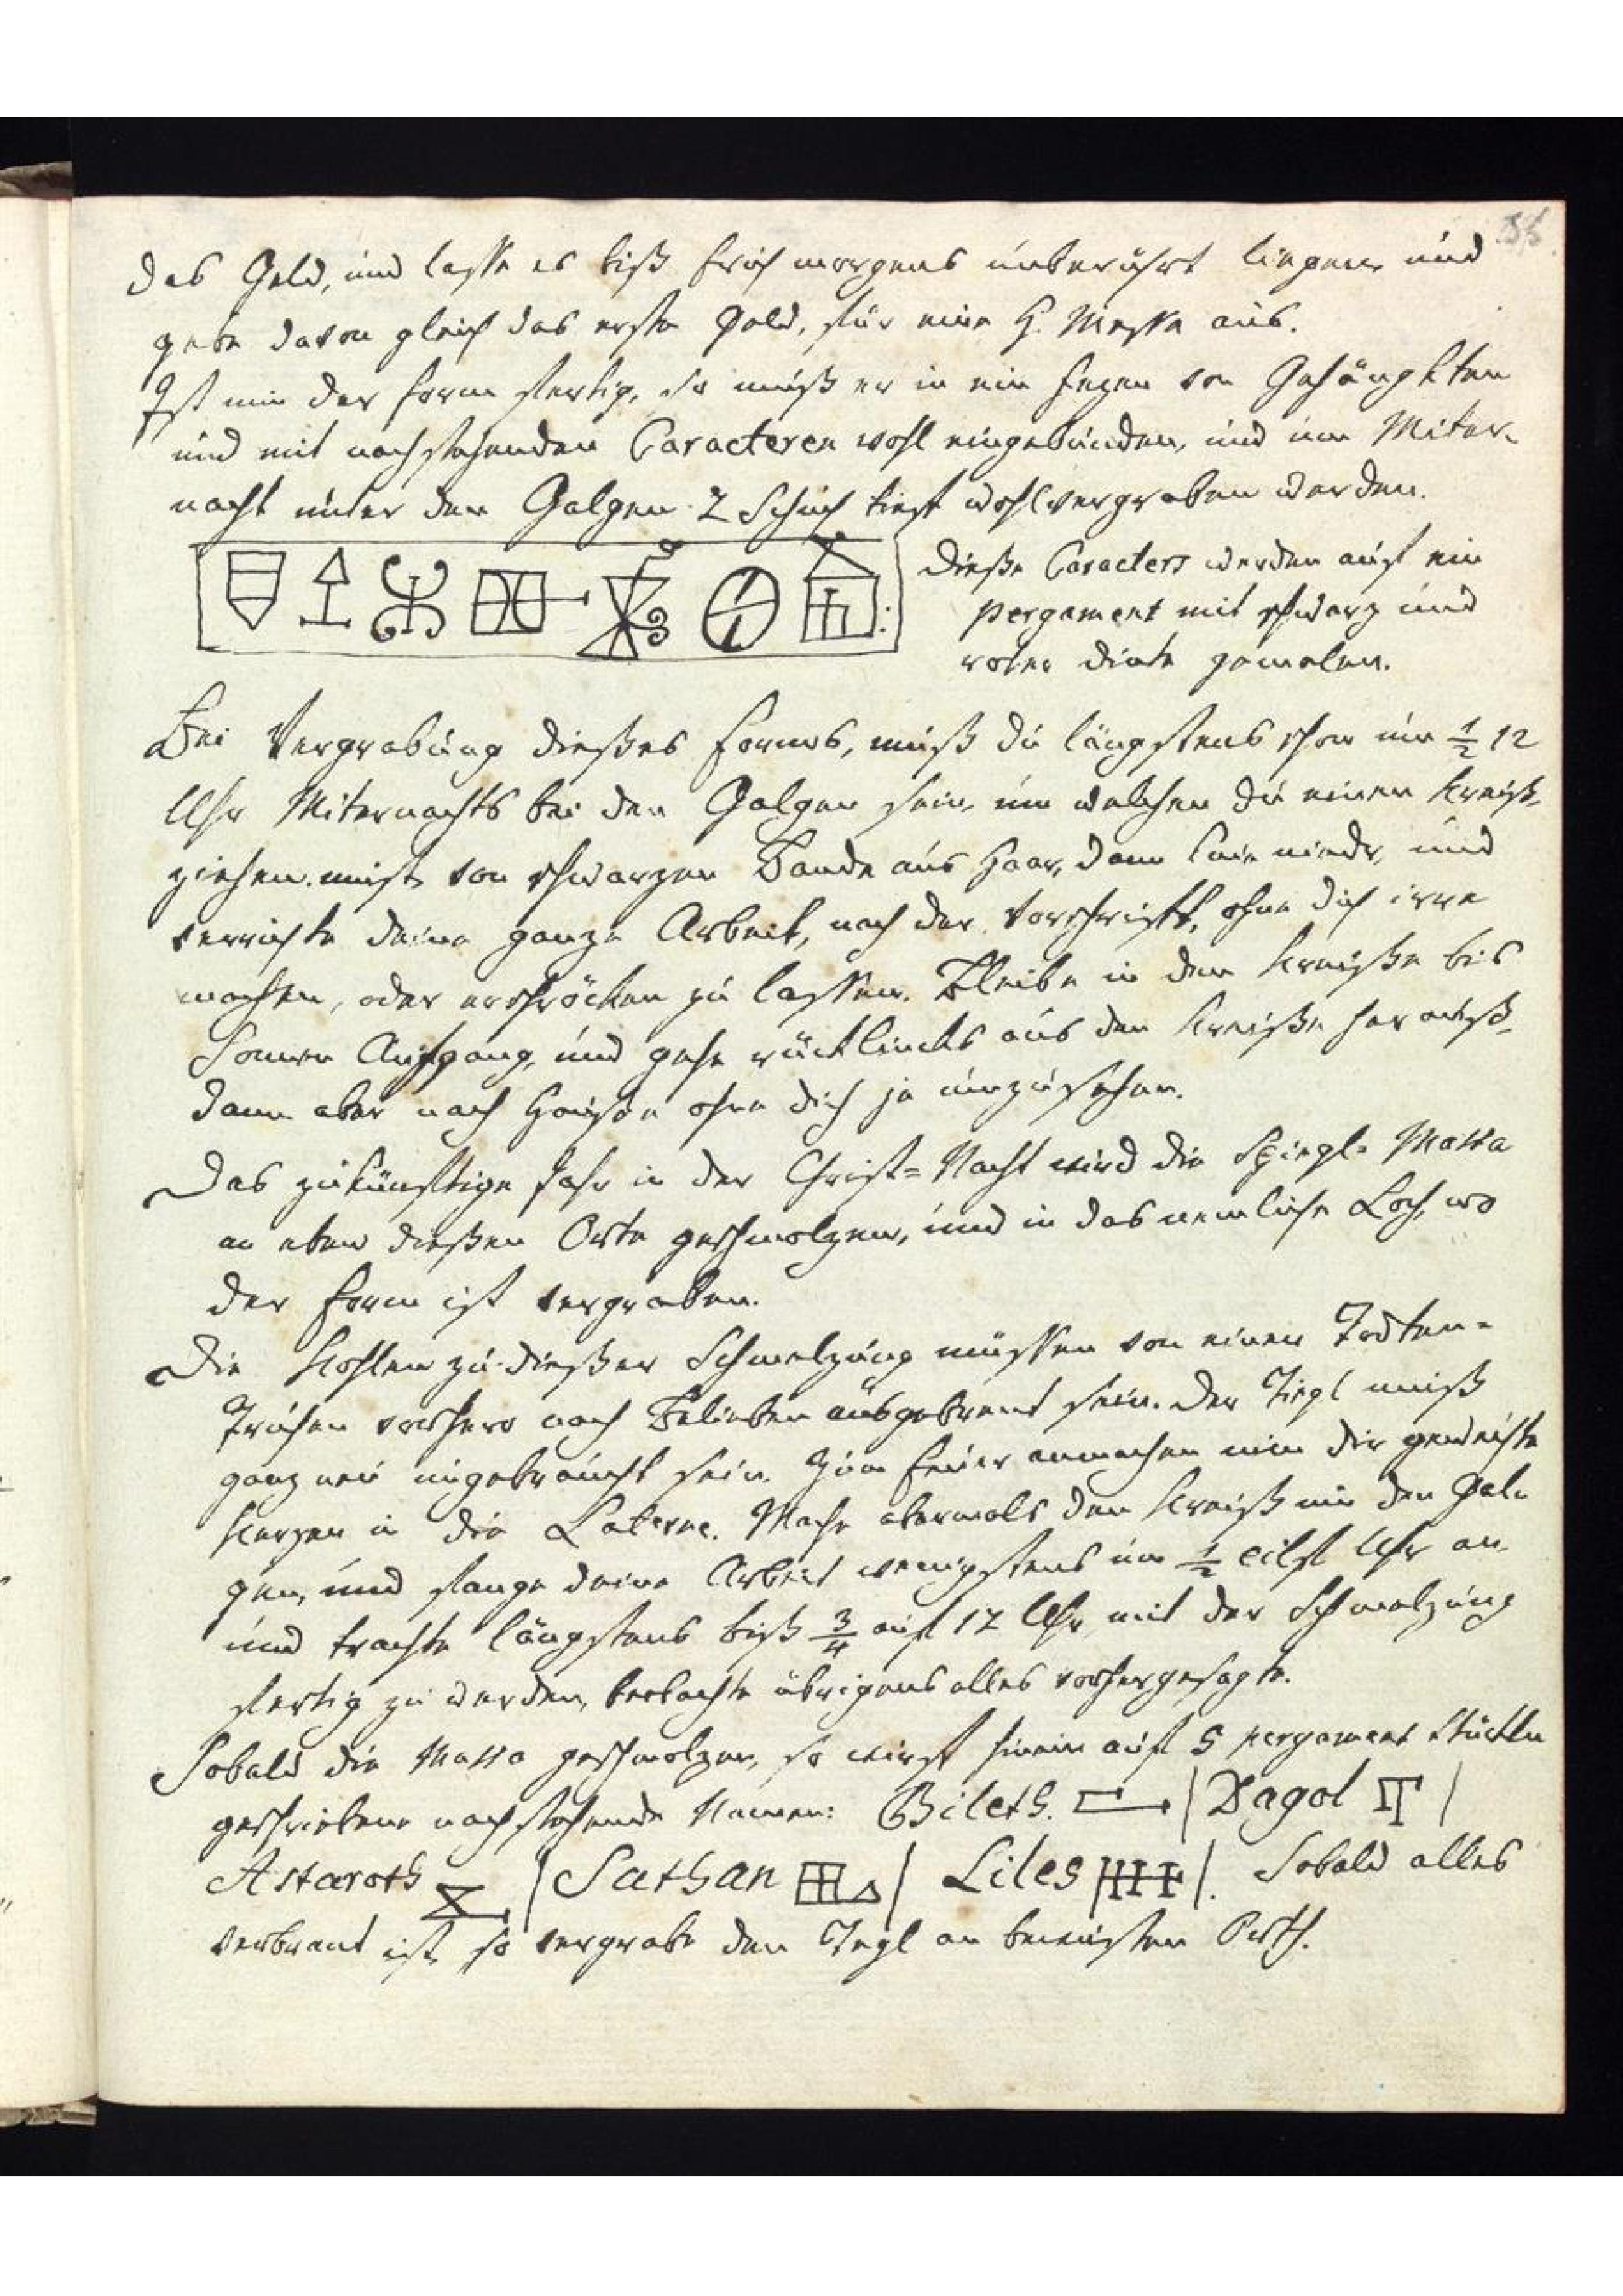 das Geld, und lasse es biß früh morgens unberührt liegen, und
gebe davon gleich das erste Geld, für eine H. Messe aus.
Ist nun der Form fertig, so muß er in ein Fezen von Gehängkten
und mit nachstehenden Caracteren wohl eingebunden, und um Miter-
nacht unter den Galgen 2 Schuch tief wohl vergraben werden.
Dieße Caracters werden auf ein
pergament mit schwarz und
roter Dinte gemalen.
Bei Vergrabung dießes Forms, muß du längstens schon um ½ 12
Uhr Miternachts bei den Galgen sein, um welchen du einen Kreiß
ziehen must, von schwarzen Bande aus Haar, dann knie nieder, und
verrichte deine ganze Arbeit, nach der Vorschrift, ohne dich irre
machen, oder erschröcken zu lassen. Bleibe in den Kreiße bis
Sonnen Aufgang, und gehe rücklincks aus den Kreiße herauß,
dann aber nach Hauße ohne dich je umzusehen.
Das zukünftige Jahr in der Christ=Nacht wird die Spiegl-Massa
an eben dießen Orte geschmolzen, und in das nemliche Loch, wo
der Form ist vergraben.
Die Kohlen zu dießer Schmelzung müssen von einen Todten-
Truhen vorhero nach Belieben ausgebrent sein. Der Tiegl muß
ganz neu ungebraucht sein. Zum Feuer anmachen nim dir geweihte
Kerzen in die Laterne. Mache abermals den Kreiß um den Gal-
gen, und fange deine Arbeit wenigstens um ½ eilf Uhr an,
und trachte längstens biß ¾ auf 12 Uhr mit der Schmelzung
fertig zu werden, beobachte übrigens alles vorhergesagte.
Sobald die Massa geschmolzen, so wirf hinein auf 5 pergament Stückln
geschriebene nachstehende Namen: Bileth. | Dagol |
Astaroth | Sathan | Liles |. Sobald alles
verbrant ist, so vergrabe den Tiegl an bewusten Orth.